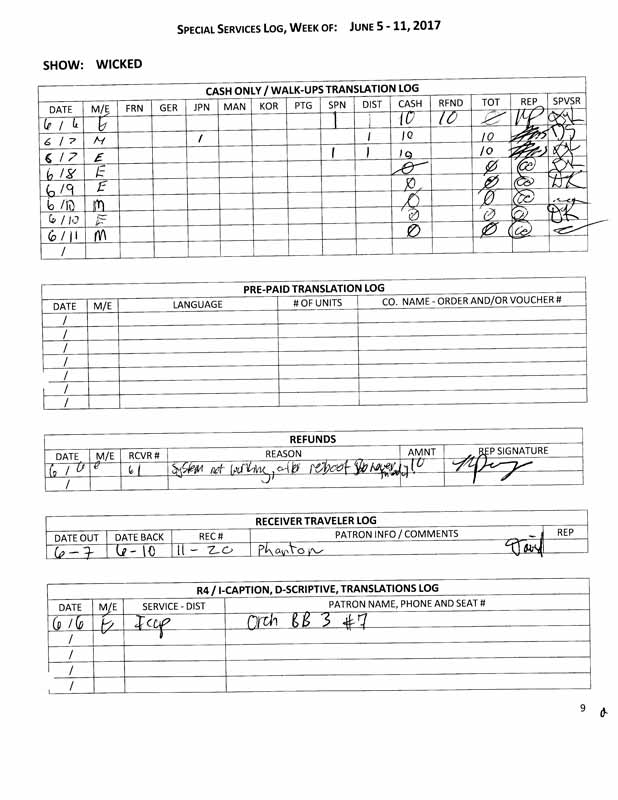 SPECIAL SERVICES LOG, WEEK OF: JUNE 5 - 11, 2017
SHOW: WICKED
CASH ONLY / WALK-UPS TRANSLATION LOG
DATE M/E FRN GER JPN MAN KOR PTG SPN DIST CASH RFND TOT REP SPVSR
6/6 E 1 10 10
6/7 M 1 1 10 10 DS
6/7 E 1 1 10 10
6/8 E 0 0 CC
6/9 E 0 0 CC DK
6/10 M 0 0 CC
6/10 E 0 0 DK
6/11 M 0 0 CC
/
PRE-PAID TRANSLATION LOG
DATE M/E LANGUAGE # OF UNITS CO. NAME - ORDER AND/OR VOUCHER #
/
/
/
/
/
/
/
REFUNDS
DATE M/E RCVR # REASON AMNT REP SIGNATURE
6/6 e 61 System not working, after reboot 10
/
RECEIVER TRAVELER LOG
DATE OUT DATE BACK REC # PATRON INFO / COMMENTS REP
6-7 6-10 11-20 Phantom
R4 / I-CAPTION, D-SCRIPTIVE, TRANSLATIONS LOG
DATE M/E SERVICE - DIST PATRON NAME, PHONE AND SEAT #
6/6 E Icap Orch BB 3 #7
/
/
/
9